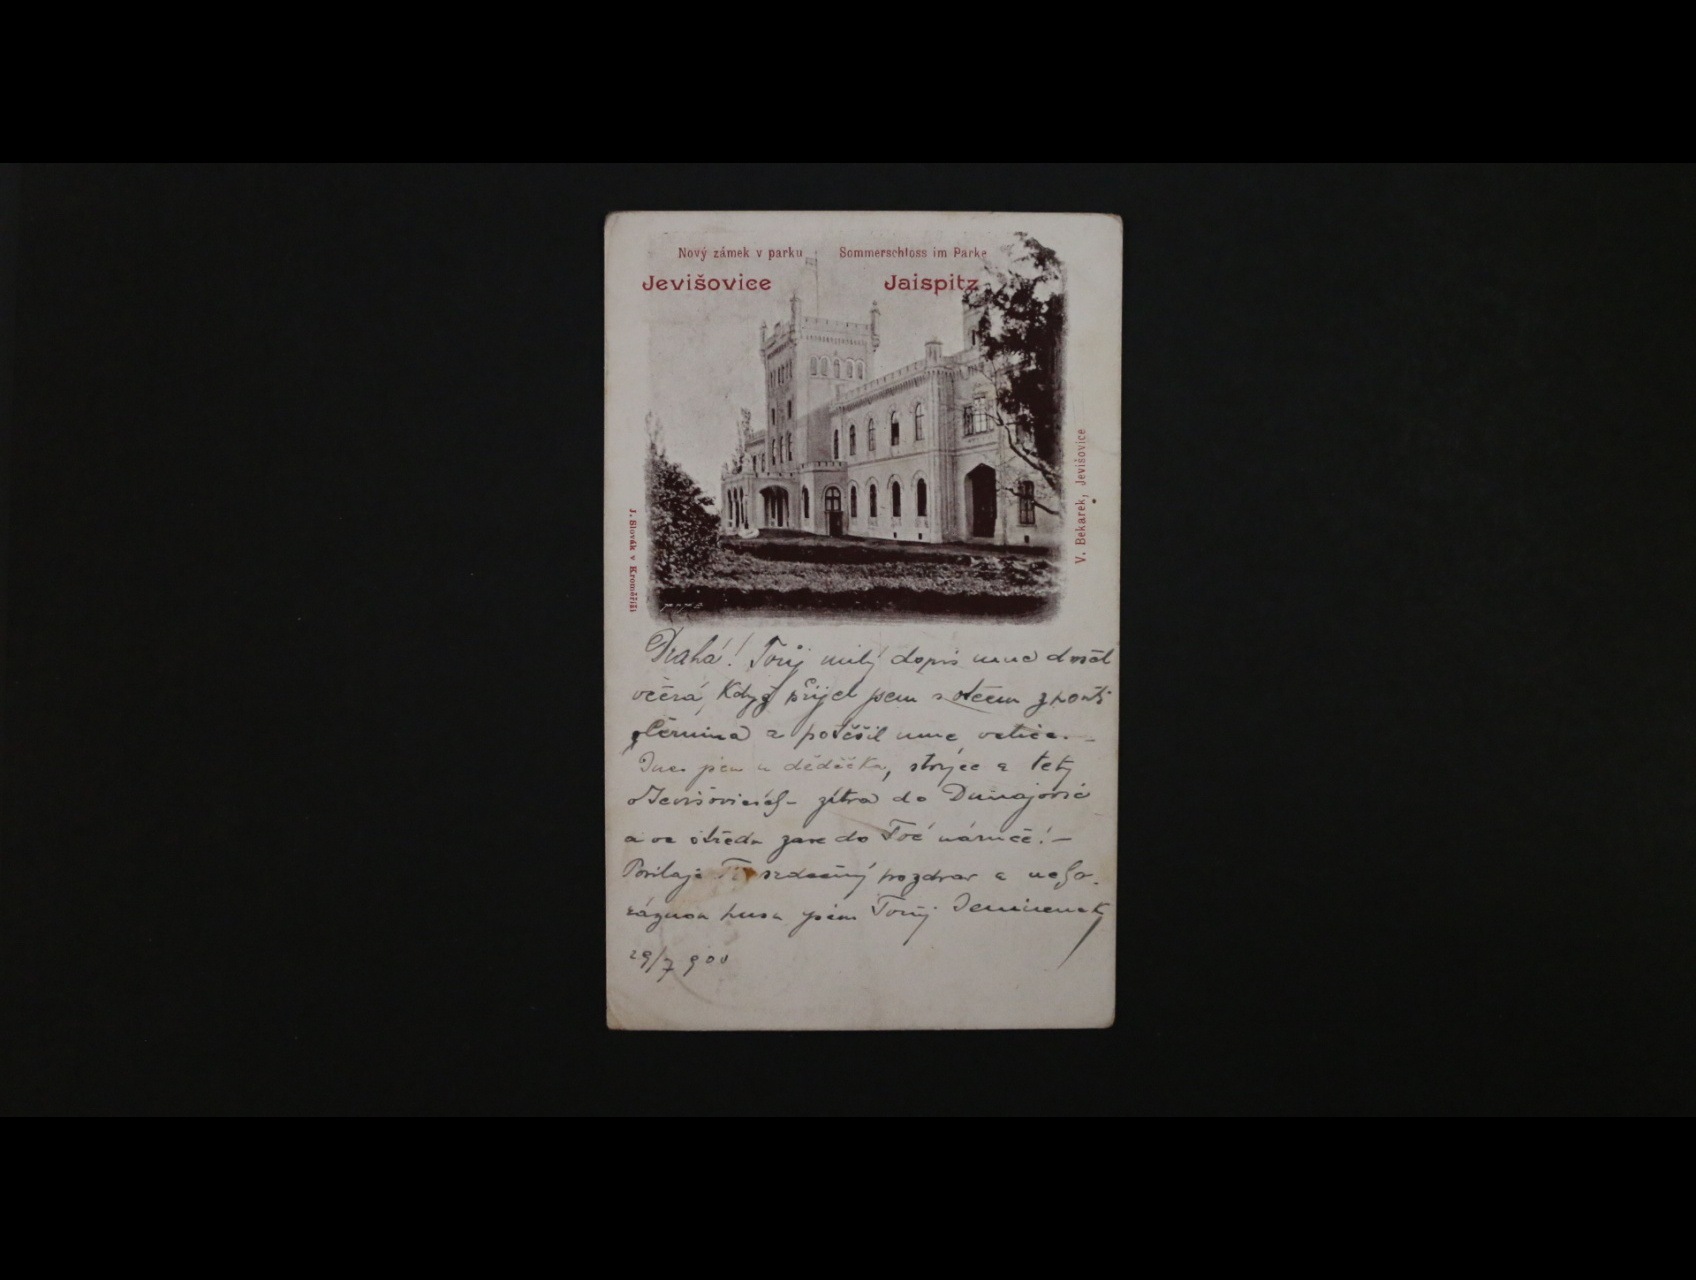 Nový zámek v parku
Sommerschloss im Parke
Jevišovice
Jaispitz
J. Slovák v Kroměříži
V. Bekarek, Jevišovice
Drahá! Tvůj milý dopis mne došel
včera, když přijel jsem s otcem z pouti
a potěšil mne velice. –
Dnes jsem u dědečka, strýce a tety
v Jevišovicích – zítra do Dunajovic
a ve středu zase do Tvé náruče! –
Posílaje Ti srdečný pozdrav a neho-
ráznou pusu jsem Tvůj
29/7 900